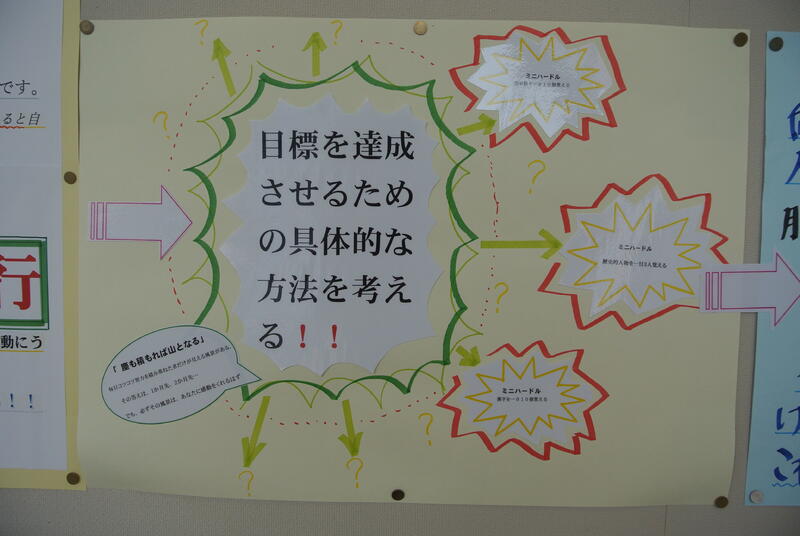 です。
ると自
行
動にう
！！
目標を達成
させるため
の具体的な
方法を考え
る！！
「 塵も積もれば山となる」
毎日コツコツ努力を積み重ねた者だけが見える風景がある。
その答えは、1か月先、2か月先…
でも、必ずその風景は、あなたに感動をくれるはず
ミニハードル
ミニハードル
歴史的人物を一日3人覚える
ミニハードル
漢字を一日１０個覚える
？
？
？
？
？
？
？
？
け
こ